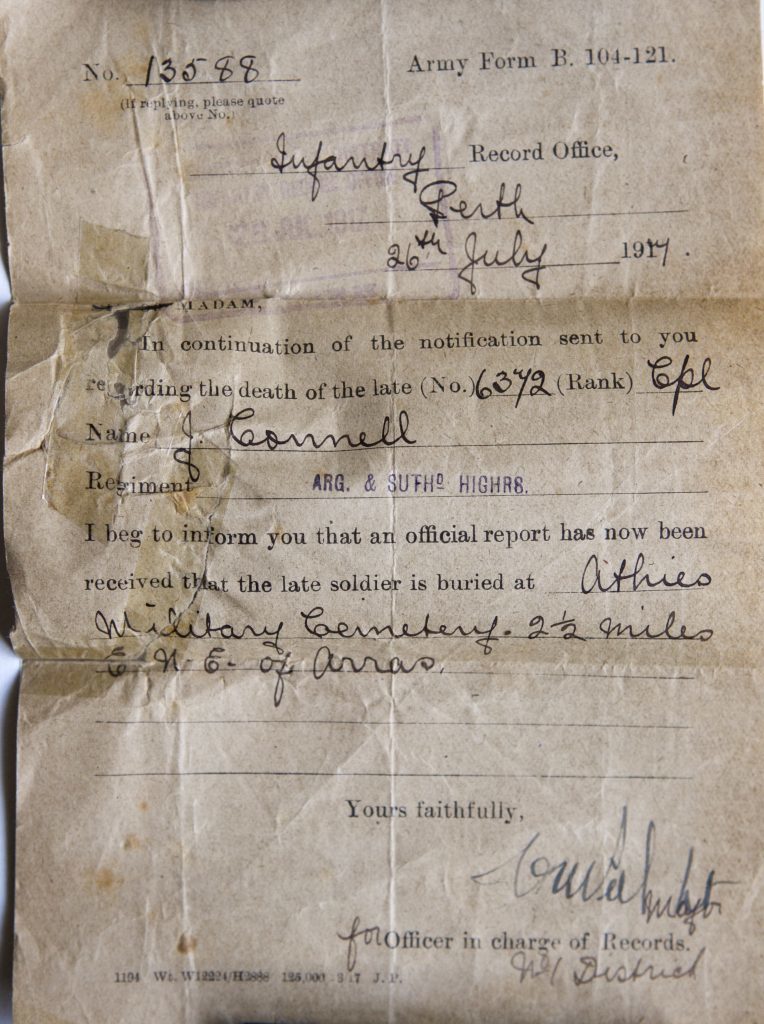 No. 13588
Army Form B. 104-121.
(If replying, please quote
above No.)
Infantry Record Office,
Perth
26th July 1917.
MADAM,
In continuation of the notification sent to you
regarding the death of the late (No.) 6372 (Rank) Cpl
Name J. Connell
Regiment ARG. & SUTHD HIGHRS.
I beg to inform you that an official report has now been
received that the late soldier is buried at Athies
Military Cemetery. 2½ miles
E. N. E. of Arras.
Yours faithfully,
for Officer in charge of Records.
No 1 District
1194 Wt. W12224/H2888 125,000 3 17 J.P.